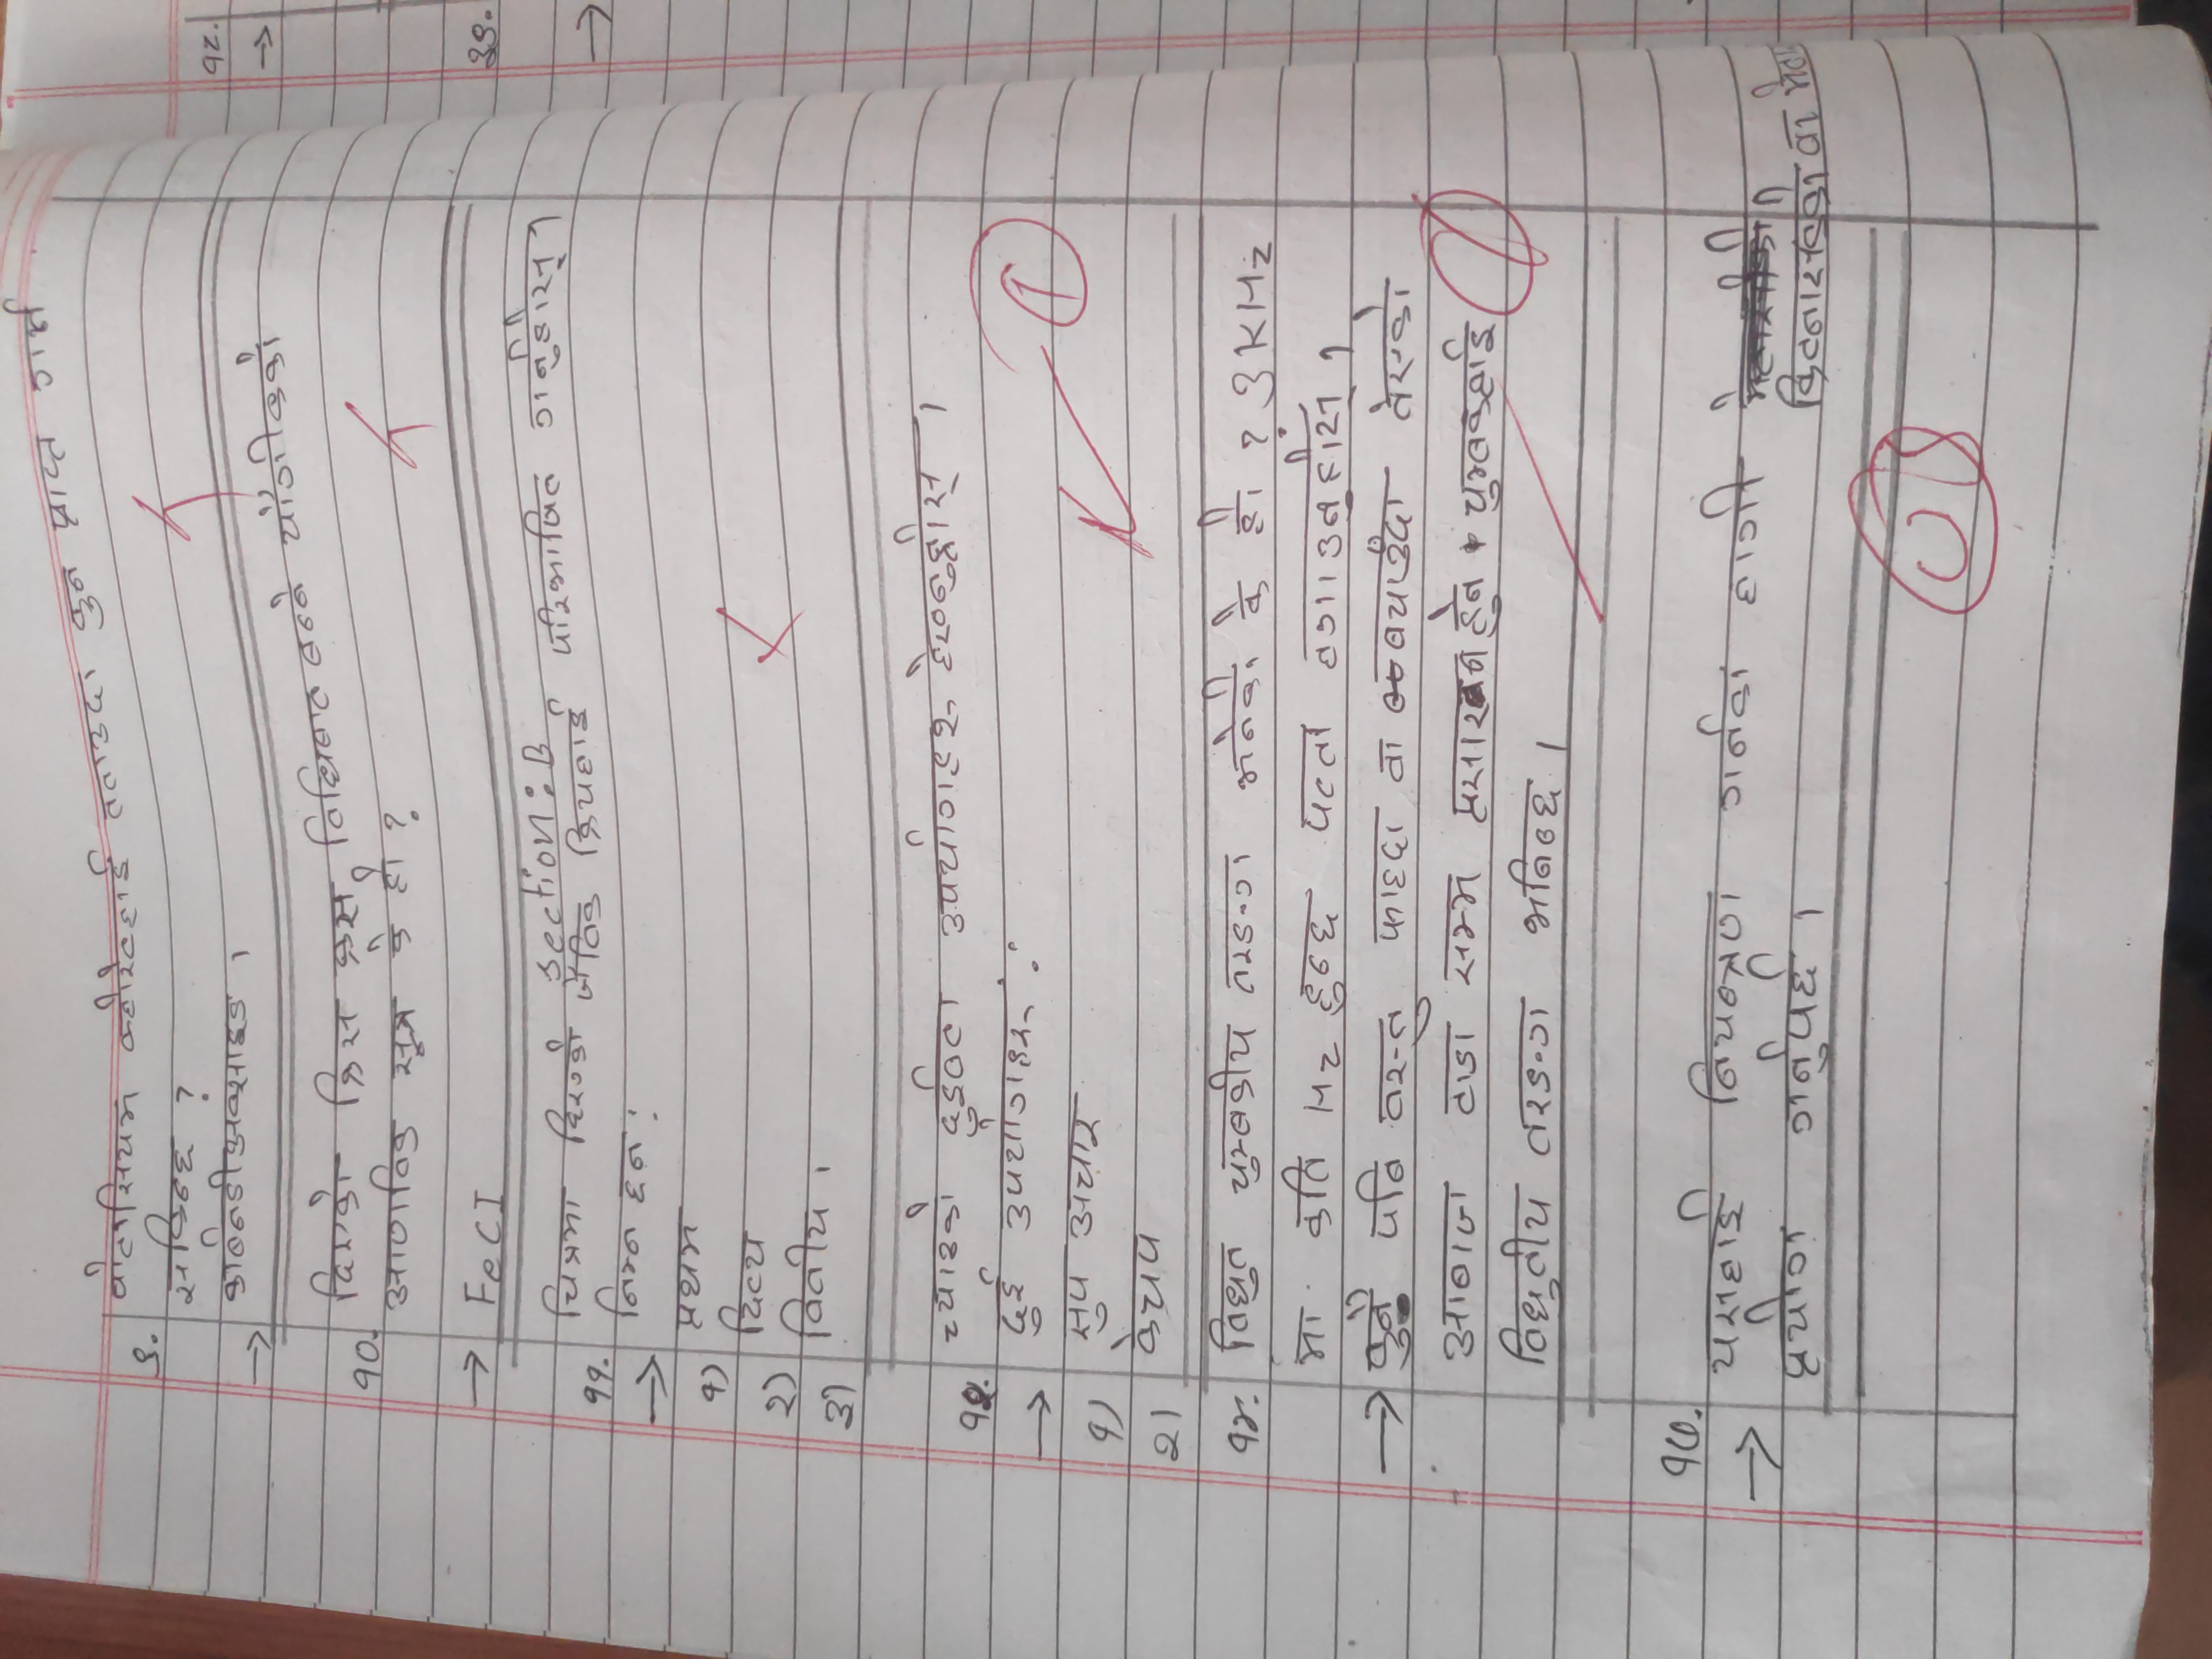 ९. पोटासियम क्लोरेटलाई तताउदा कुन प्राप्त गर्न
सकिन्छ ?
→ कार्बनडीअक्साइड ।
१०. दिएको क्रिस क्रस विधिबाट बन्ने यौगीकको
आणविक सूत्र के हो ?
→ FeCI
section: B
११. चित्रमा दिएको जैविक क्रियलाई परिभाषित गर्नुहोस् ।
→ निम्न छन :
१) प्रथम
२) दित्य
३) वितीय ।
१२. च्याउको दुईवटा उपयोगहरू लेख्नुहोस् ।
→ दुई उपयोगहरू :
१) सुप अचार
२) केचप
१४. विधुत चुम्बकीय तरङग भनेको के हो ? 3KHz
मा कति Hz हुन्छ पत्ता लगाउनुहोस् ।
→ कुनै पनि वस्तु फाल्दा वा बचाउँदा तेस्को
आबाज टाडा सम्म प्रसारन हुने चुम्बकलाई
विधुतीय तरङग भनिन्छ ।
१७.
→ यसलाई नियन्त्रण गर्नका लागी
किटनासकको वा
प्रयोग गर्नुपर्छ ।
१८.
→
→